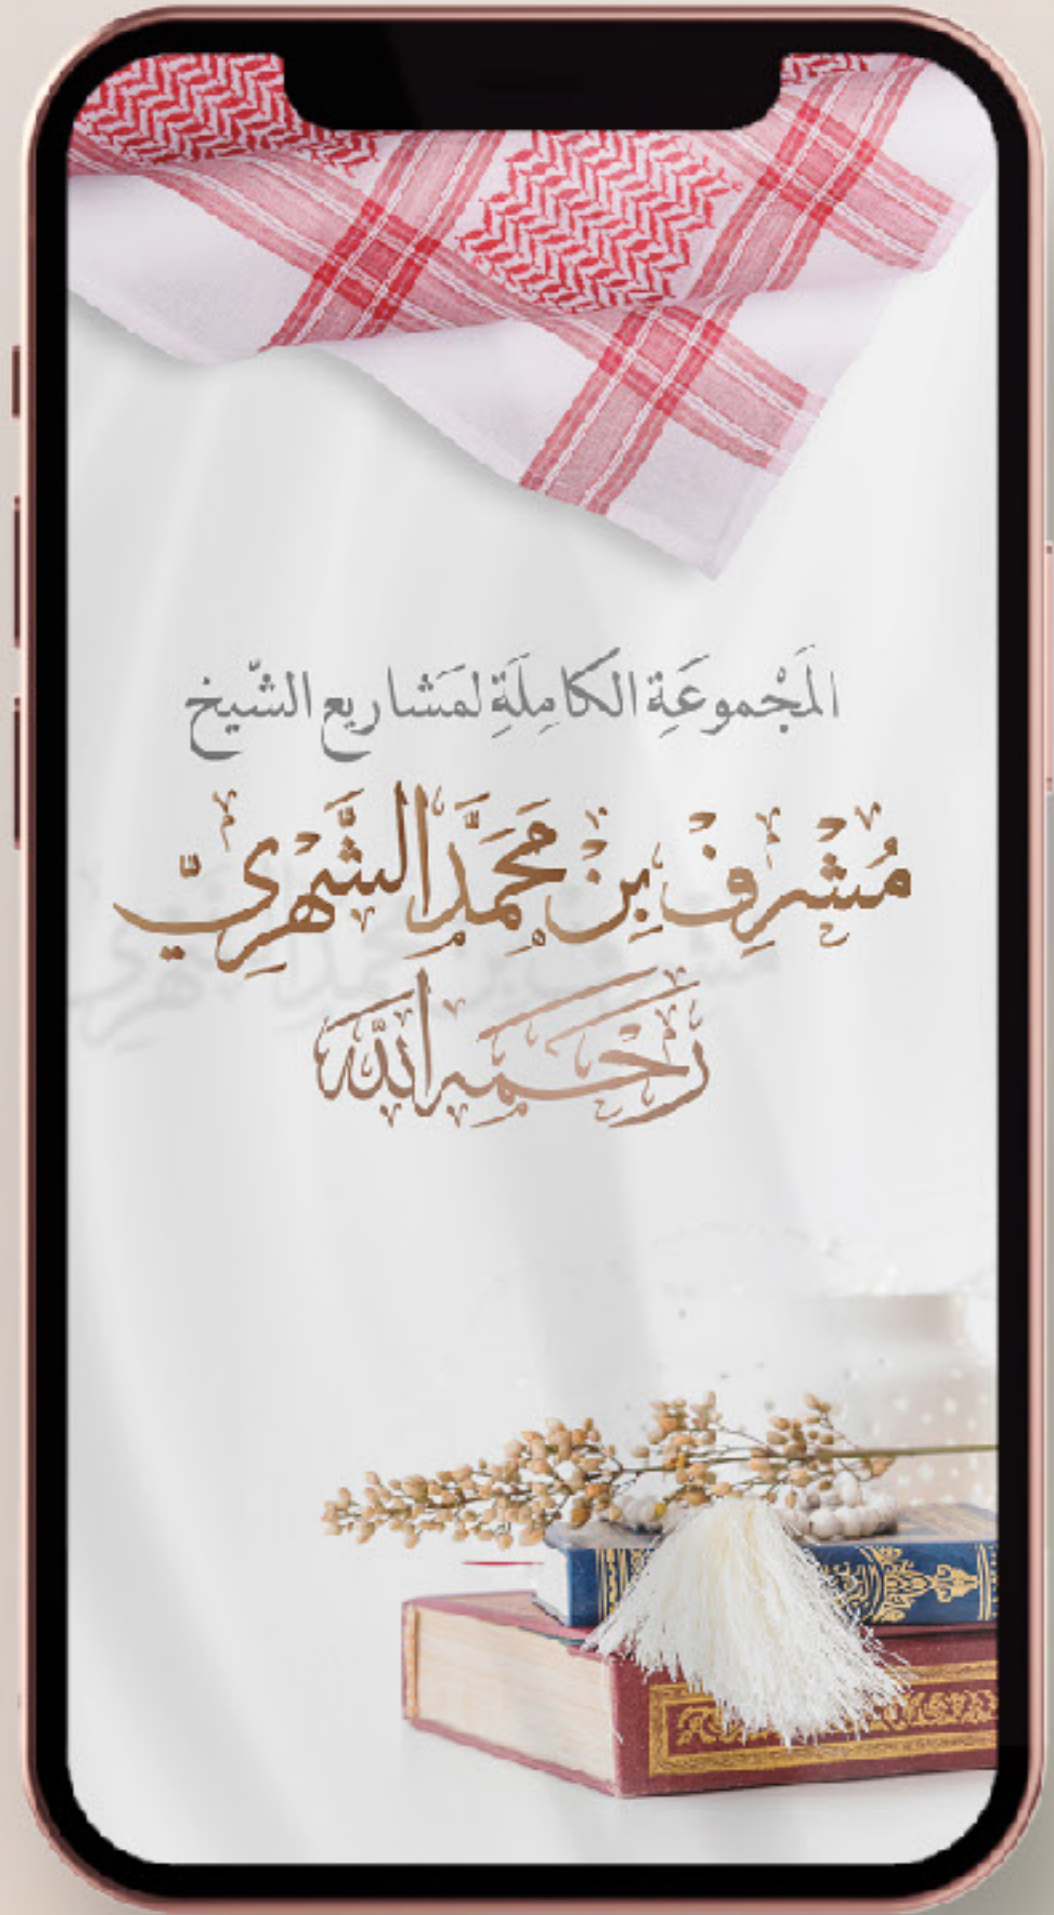 المَجْموعَةِ الكامِلَةِ لمَشاريع الشّيخ
مُشْرِف بِنْ مُحَمَّد الشَّهْرِيّ
رَحِمَه الله